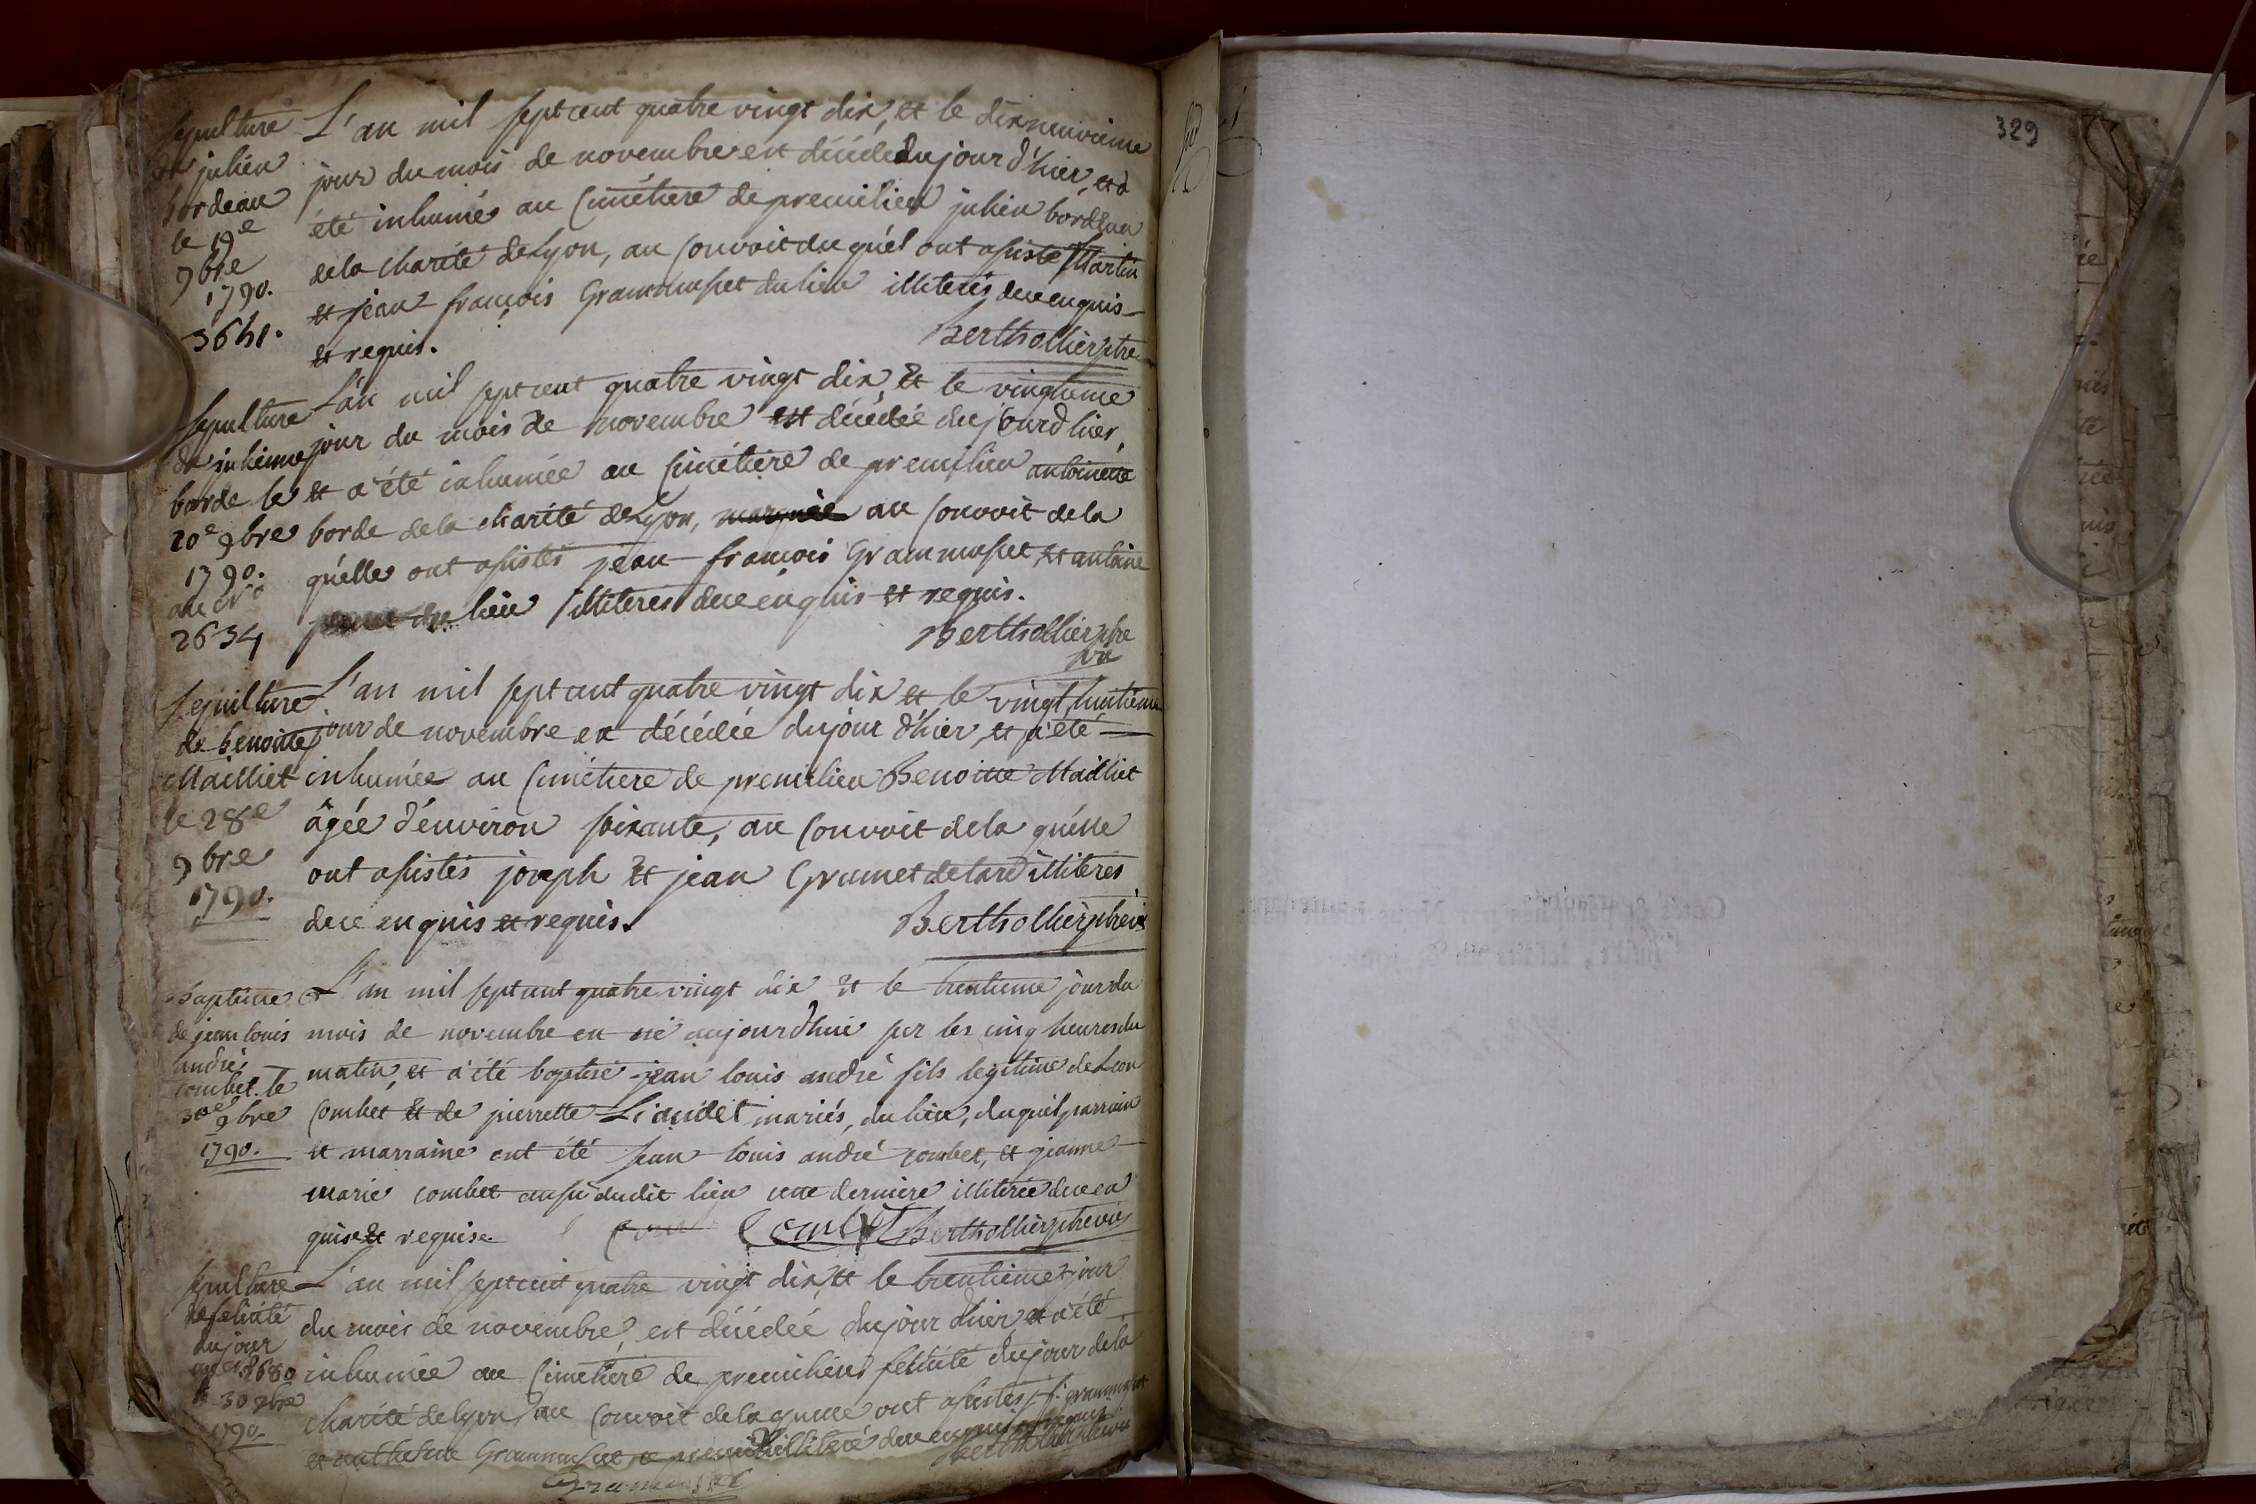 Sepulture
de julien
bordeau
le 19e
9bre
1790.
L'an mil sept cent quatre vingt dix, et le dix neuvieme
jour du mois de novembre est décédé du jour d'hier, et a
été inhumé au Cimétiere de premilieu julien bordeau
de la charité de Lyon, au Convoit du quél ont assisté Martin
et jean françois Grammusset du lieu illiterés de ce enquis
et requis.
Berthollier ptre
Sepulture
de julienne
borde le
20e 9bre
1790.
au no
2634
L'an mil sept cent quatre vingt dix, et le vingtieme
jour du mois de novembre est décédée du jour d'hier,
et a été inhumée au Cimétiere de premilieu antoinette
borde de la charité de Lyon, au Convoit de la
quélle ont assistés jean françois Grammusset et antoine
du lieu illiterés de ce énquis et requis.
Berthollier ptre
Sepulture
de benoitte
Mailliet
le 28e
9bre
1790.
L'an mil sept cent quatre vingt dix et le vingt huitieme
jour de novembre est décédée du jour d'hier, et a été
inhumée au Cimétiere de premilieu Benoitte Mailliet
âgée d'énviron soixante, au Convoit de la quélle
ont assistés joseph et jean Grumet de lard illiterés
de ce enquis et requis.
Berthollier ptre vic
Baptême
de jean louis
andré
combet le
30e 9bre
1790.
L'an mil sept cent quatre vingt dix et le trentieme jour du
mois de novembre est né aujourd'hui sur les cinq heures du
matin, et a été baptisé jean louis andré fils legitime de Leon
Combet et de pierrette Liaudet mariés, du lieu, duquél parrain
et marraine ont été jean louis andré combet, et jeanne
marie combet aussi dudit lieu cette derniere illiterée de ce en
quise et requise.
Combet Berthollier ptre vic
Sepulture
de felicité
dujour
au no 2680
le 30 9bre
1790.
L'an mil sept cent quatre vingt dix, et le trentieme jour
du mois de novembre, est décédée du jour d'hier, et a été
inhumée au Cimétiere de premilieu felicité dujour de la
charité de Lyon, au Convoit de la quelle ont assistés
Grammusset